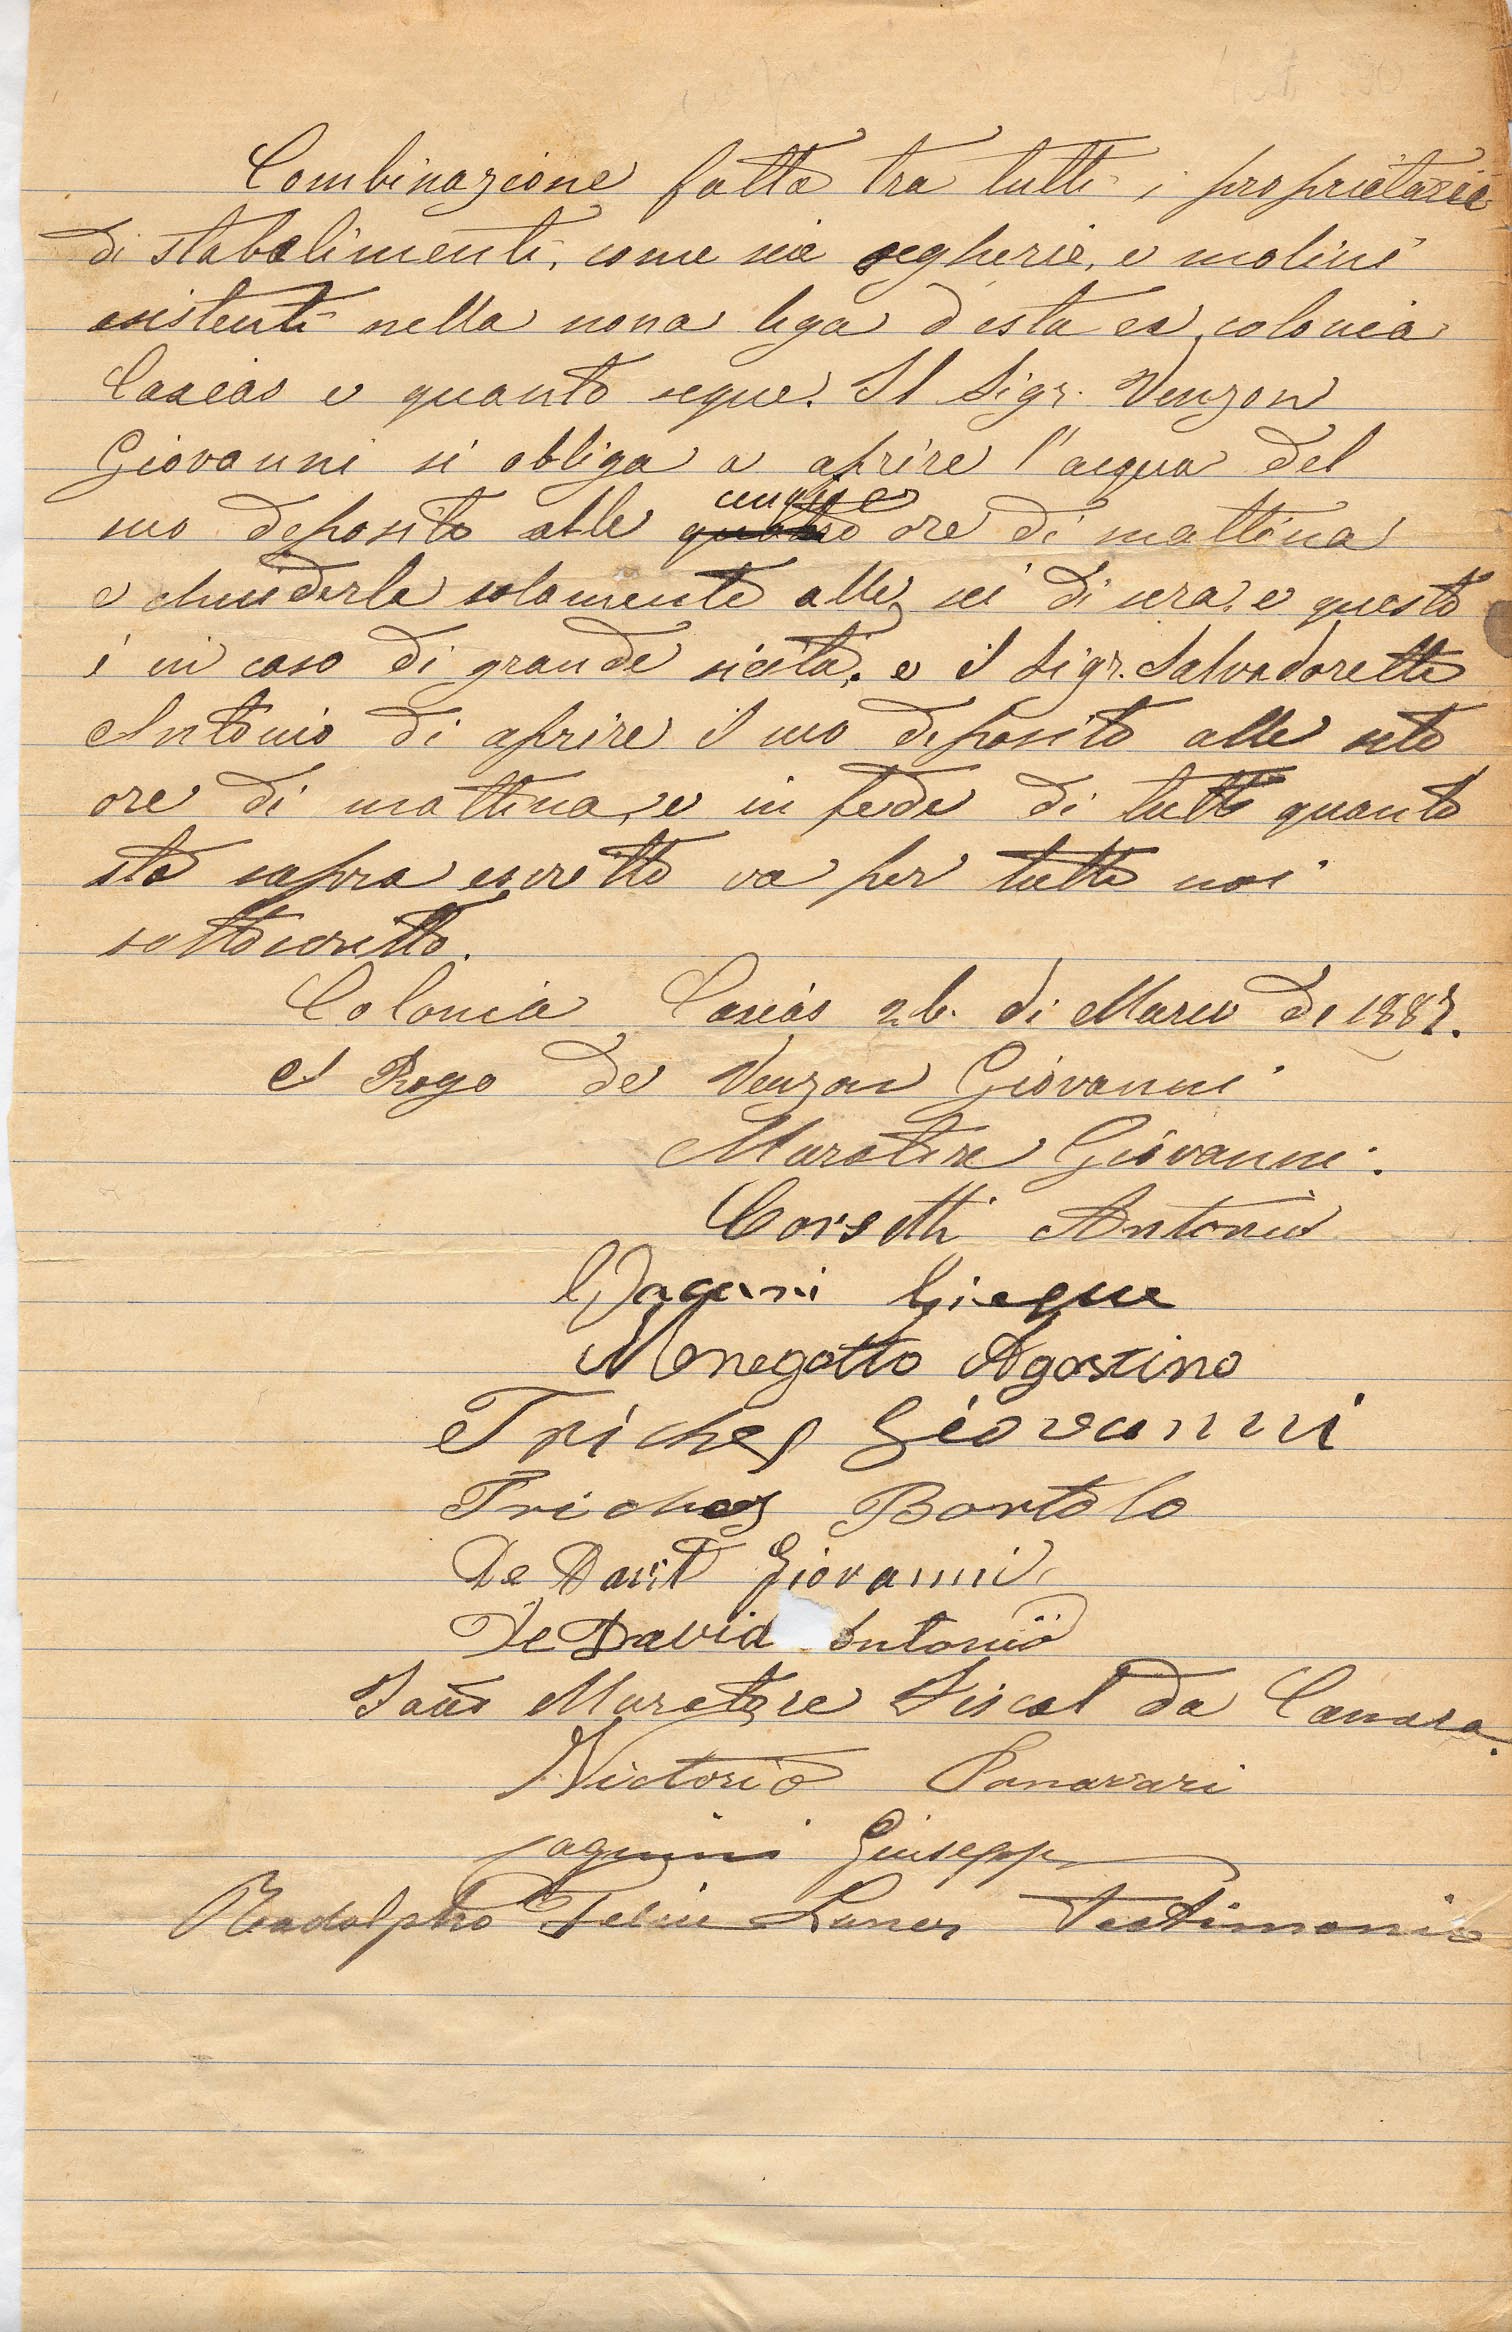 Combinazione fatta tra tutti i proprietarii
di stabelimenti, come sia segherie, e molini
esistenti nella nona lega d'esta ex colonia
Caxias e quanto segue. Il Sigr. Venzon
Giovanni si obliga a aprire l'acqua del
suo deposito alle quatro cinque ore di mattina
e chiuderla solamente alle sei di sera, e questo
è in caso di grande sicità, e il Sigr. Salvadoretti
Antonio di aprire il suo deposito alle seto
ore di mattina, e in fede di tutto quanto
sta sopra escritto va per tutti noi
sottoscritto.
Colonia Caxias 26. di Marzo de 1887.
A Rogo de Venzon Giovanni
Muratore Giovanni.
Corsetti Antonio
Menegotto Agostino
Triches Giovanni
Triches Bortolo
De Davit Giovanni
De David Antonio
João Muratore Fiscal da Camara.
Victorio
Giusepp
Rodolpho Felix Testimonio